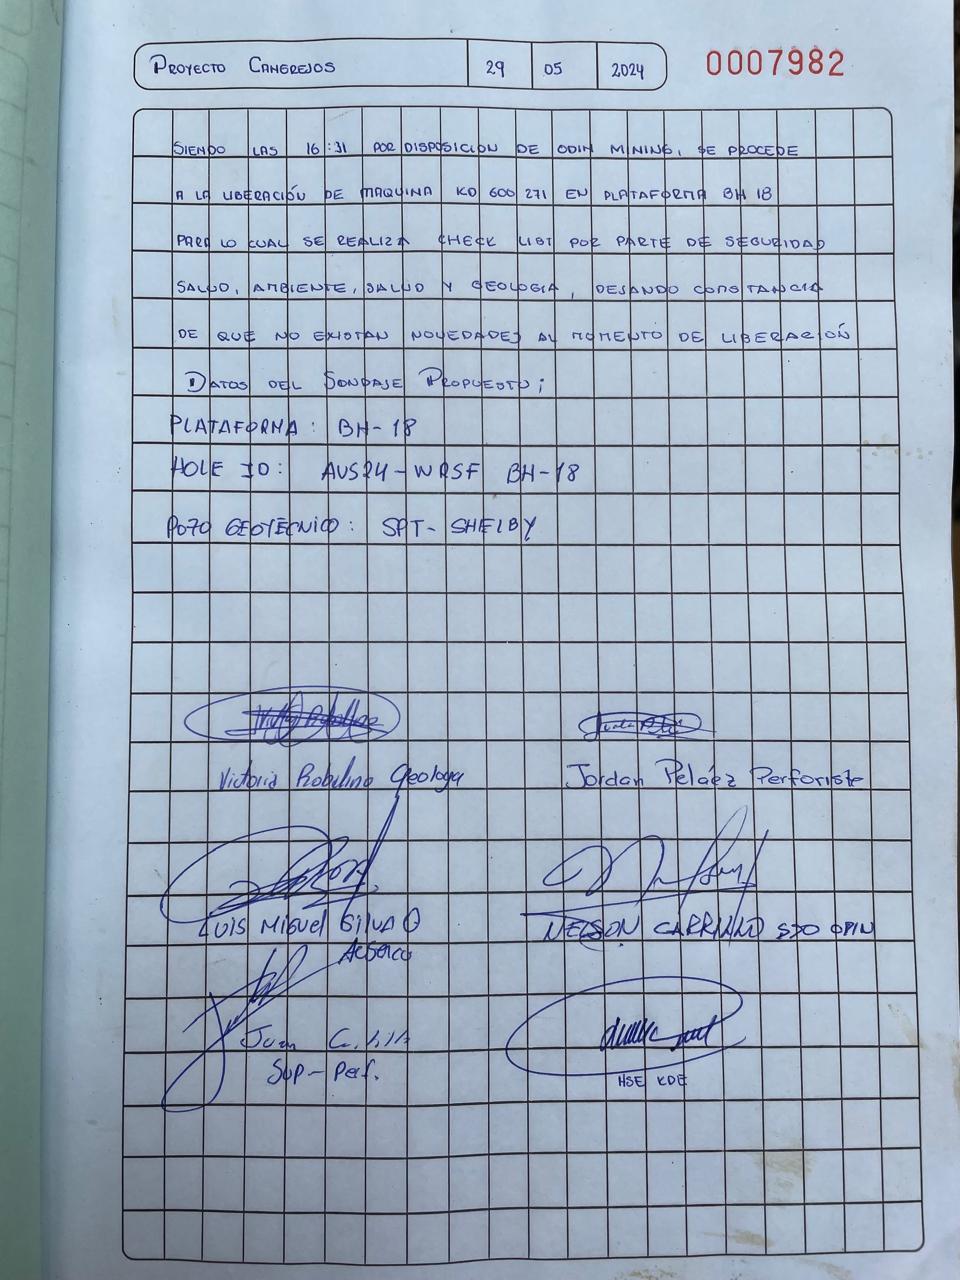 PROYECTO CANGREJOS 29 05 2024 0007982
SIENDO LAS 16:31 POR DISPOSICION DE ODIN MINING, SE PROCEDE
A LA LIBERACIÓN DE MAQUINA KD 600 271 EN PLATAFORMA BH 18
PARA LO CUAL SE REALIZA CHECK LIST POR PARTE DE SEGURIDAD
SALUD, AMBIENTE, SALUD Y GEOLOGIA, DEJANDO CONSTANCIA
DE QUE NO EXISTAN NOVEDADES AL MOMENTO DE LIBERACIÓN
DATOS DEL SONDAJE PROPUESTO;
PLATAFORMA: BH-18
HOLE ID: AUS24-WRSF BH-18
POZO GEOTÉCNICO: SPT-SHELBY
Victoria Robalino Geologa
Jordan Peláez Perforista
LUIS MIGUEL SILVA O
NELSON CARRIÓN SSO ODIN
Juan C.
Sup-Perf.
HSE KDE